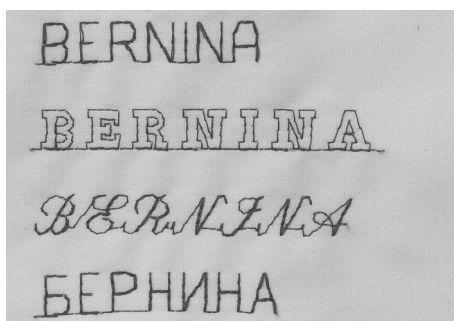 BERNINA
BERNINA
BERNINA
БЕРНИНА